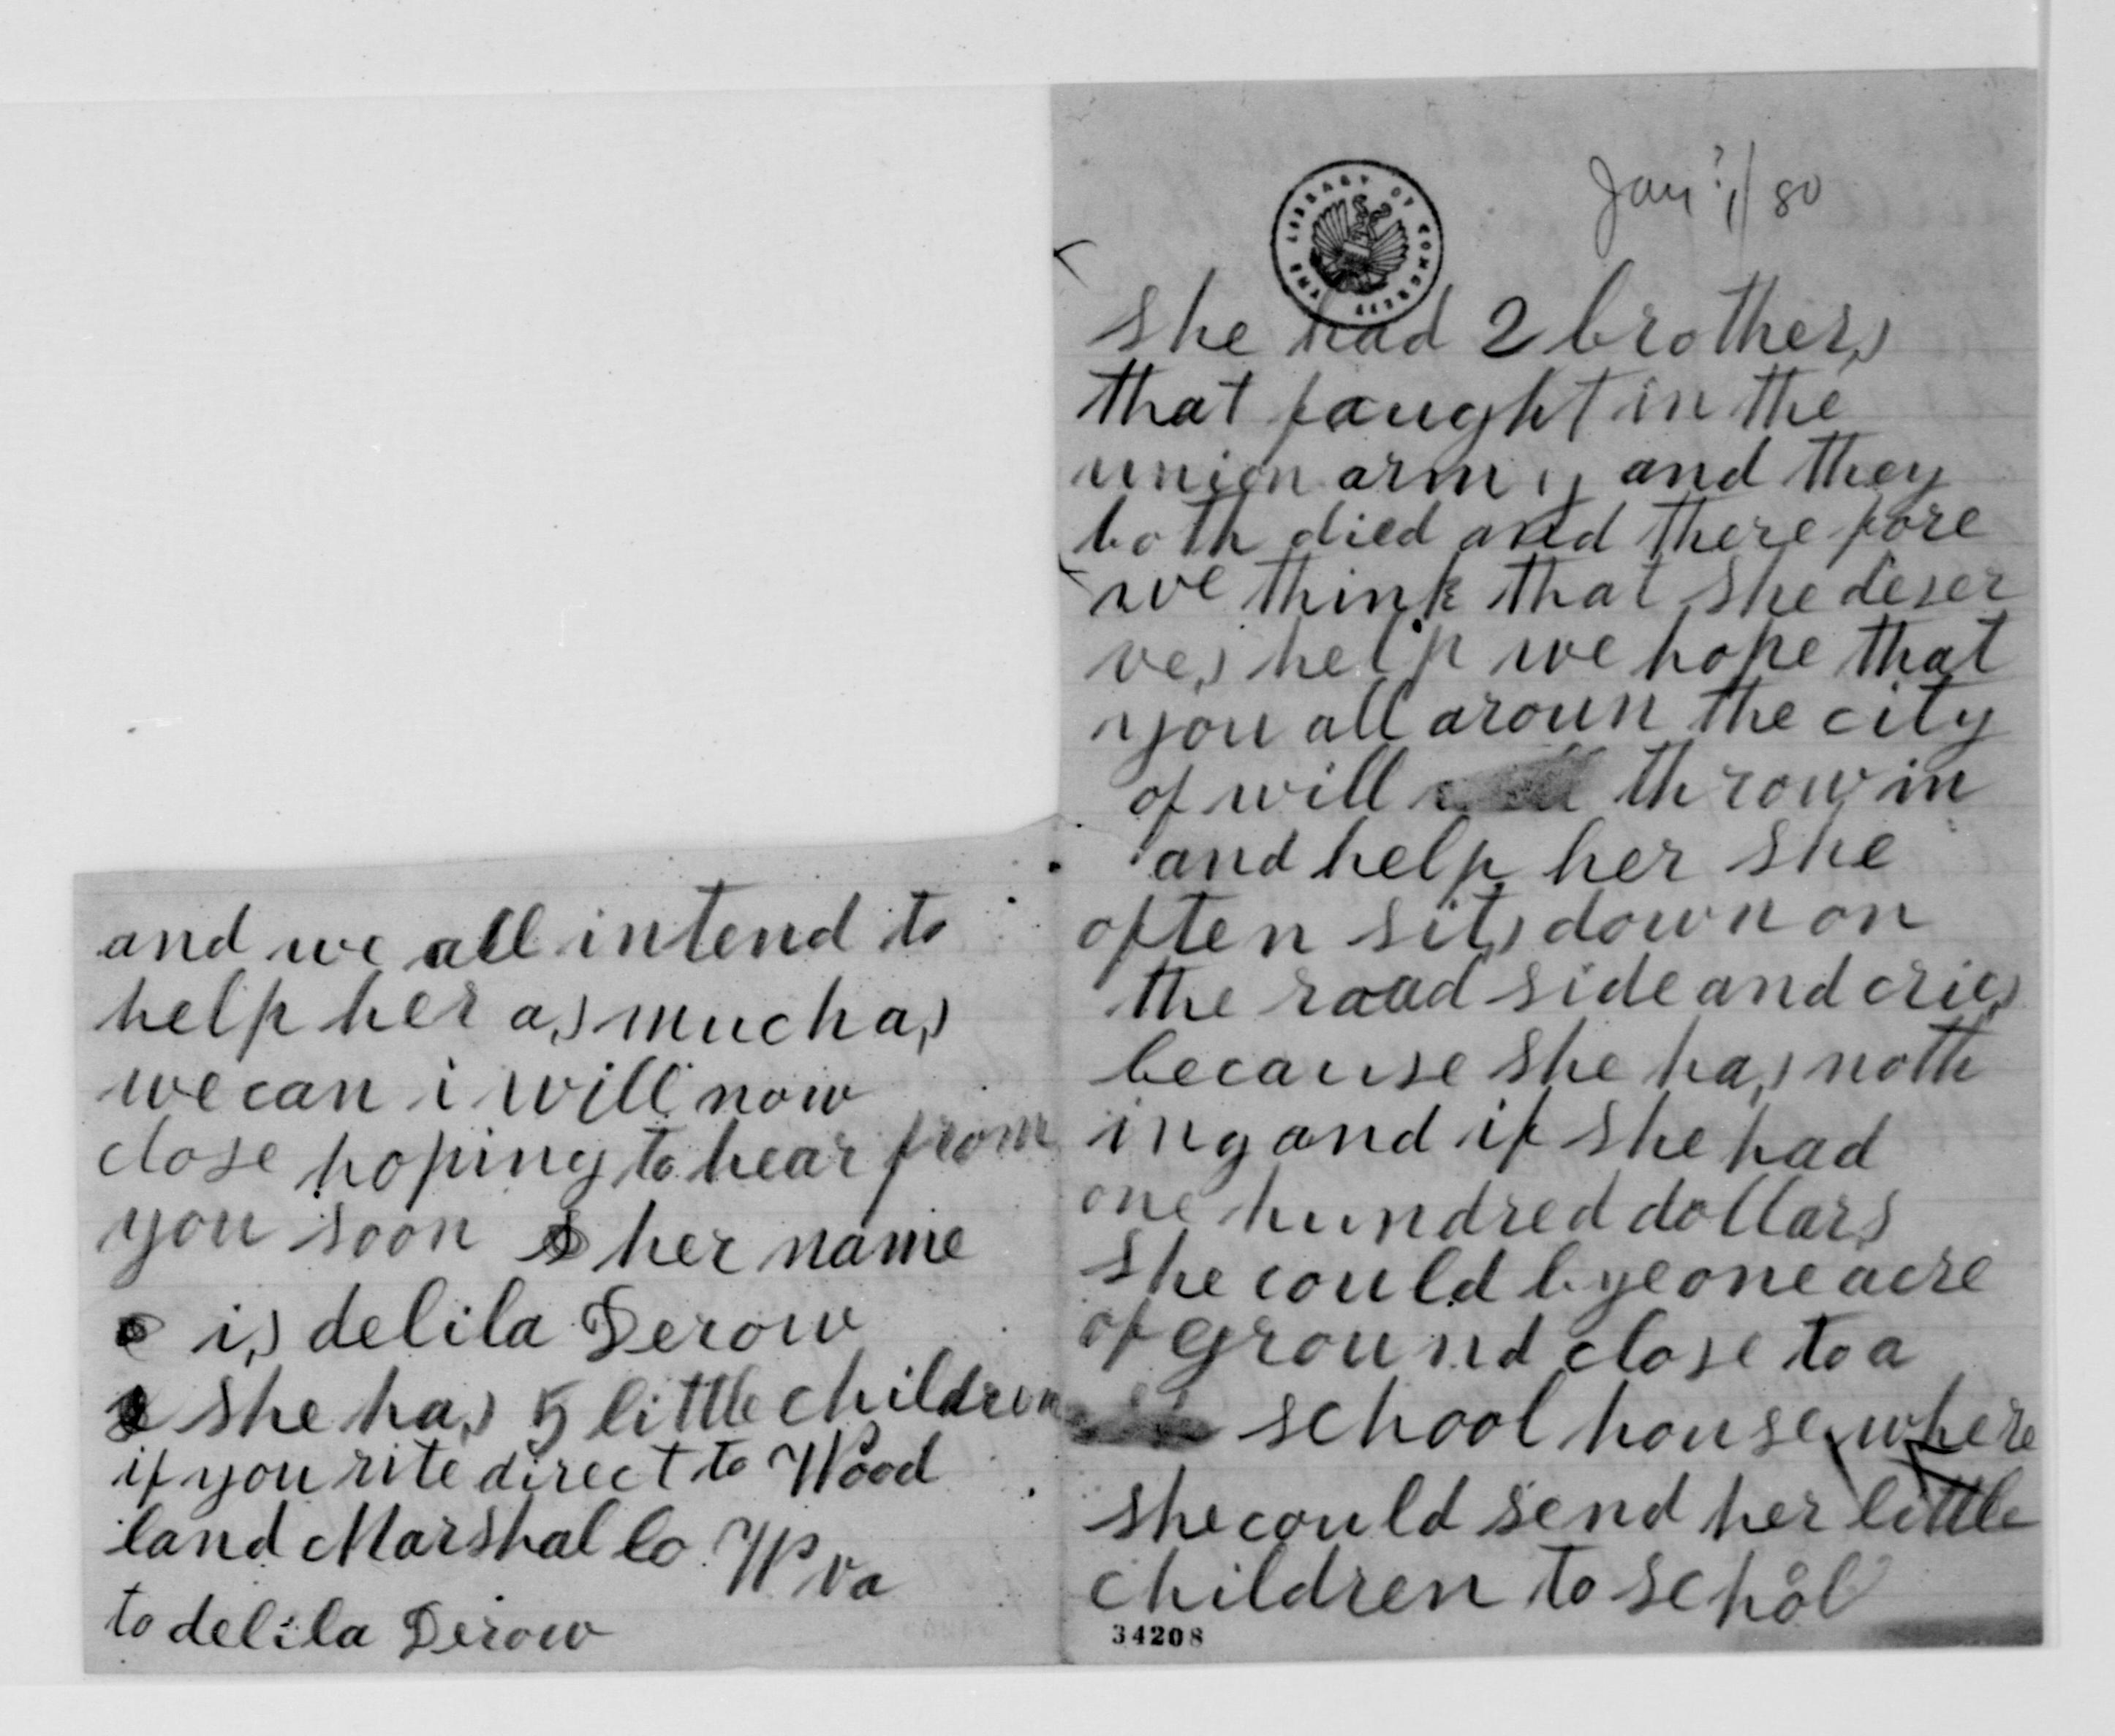 Jan ?/1/80
THE LIBRARY OF CONGRESS
she had 2 brothers
that faught in the
union army and they
both died and there fore
we think that she deser
ves help we hope that
you all aroun the city
of will throw in
and help her she
often sits down on
the raad side and cries
because she has noth
ing and if she had
one hundred dollars
she could bye one acre
of ground close to a
school house where
she could send her little
children to schol
34208
and we all intend to
help her as much as
we can i will now
close hoping to hear from
you soon her name
is delila Derow
she has 5 little children
if you rite direct to Wood
land Marshal Co W Va
to delila Derow